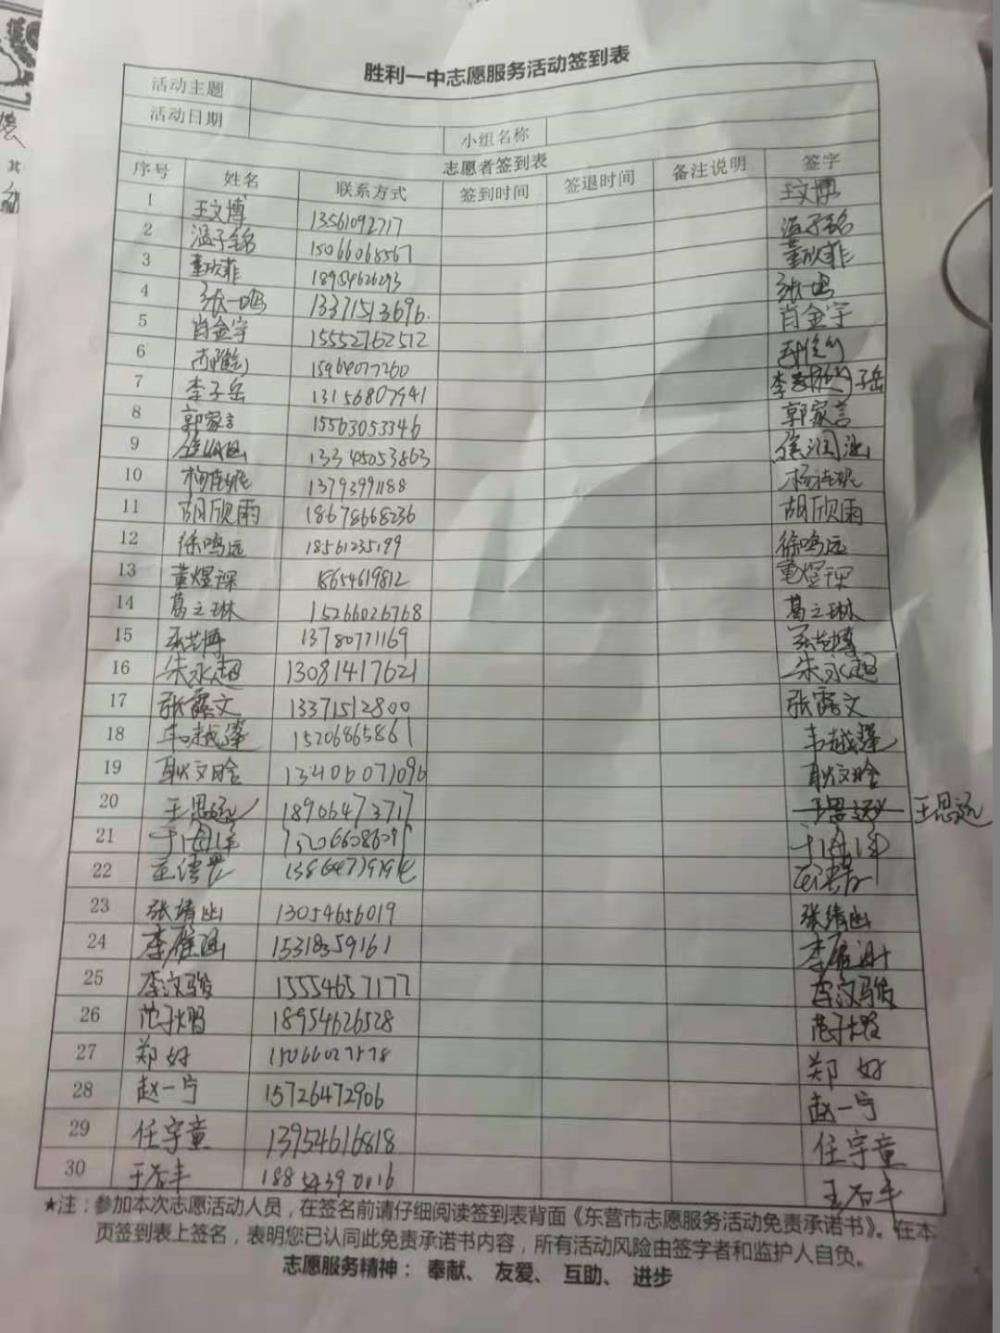 胜利一中志愿服务活动签到表
活动主题
活动日期 小组名称
志愿者签到表
序号 姓名 联系方式 签到时间 签退时间 备注说明 签字
1 王文博 13561092717 王文博
2 温子铭 15066068567 温子铭
3 董欣菲 18954626293 董欣菲
4 张一鸣 13371513696 张一鸣
5 肖金宇 15552762512 肖金宇
6 15964077260
7 李子岳 13156807941 李 子岳
8 郭家言 15563053346 郭家言
9 13345053863
10 13793991188
11 胡欣雨 18678668236 胡欣雨
12 徐鸣远 18561235199 徐鸣远
13 董煜琛 18654619812 董煜琛
14 葛立琳 15266026768 葛立琳
15 张艺博 13780771169 张艺博
16 朱永超 13081417621 朱永超
17 张露文 13371512800 张露文
18 韦越隆 15206865861 韦越隆
19 耿文晗 13406071096 耿文晗
20 王思远 18906473717 王思远 王思远
21 于海洋 于海洋
22
23 张靖幽 13054656019 张靖幽
24 李雁涵 15318359161
25 李汶骏 15554657177 李汶骏
26 范子熠 18954626528 范子熠
27 郑好 15066027578 郑好
28 赵一宁 15726472906 赵一宁
29 任宇童 13954616818 任宇童
30 王右丰 王右丰
★注：参加本次志愿活动人员，在签名前请仔细阅读签到表背面《东营市志愿服务活动免责承诺书》。在本
页签到表上签名，表明您已认同此免责承诺书内容，所有活动风险由签字者和监护人自负。
志愿服务精神： 奉献、 友爱、 互助、 进步